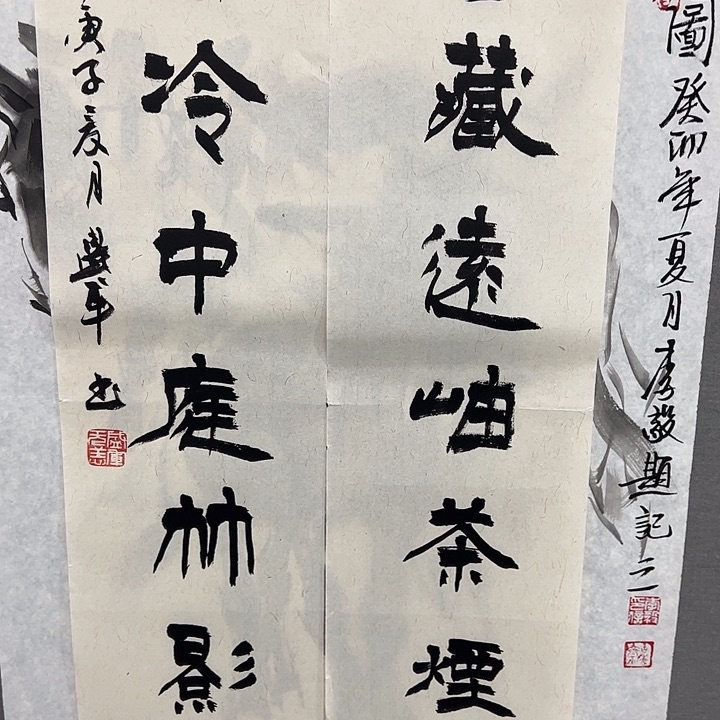 圖癸卯年夏月李毅題記之
藏遠岫茶煙
冷中庭竹影
庚子夏月
書